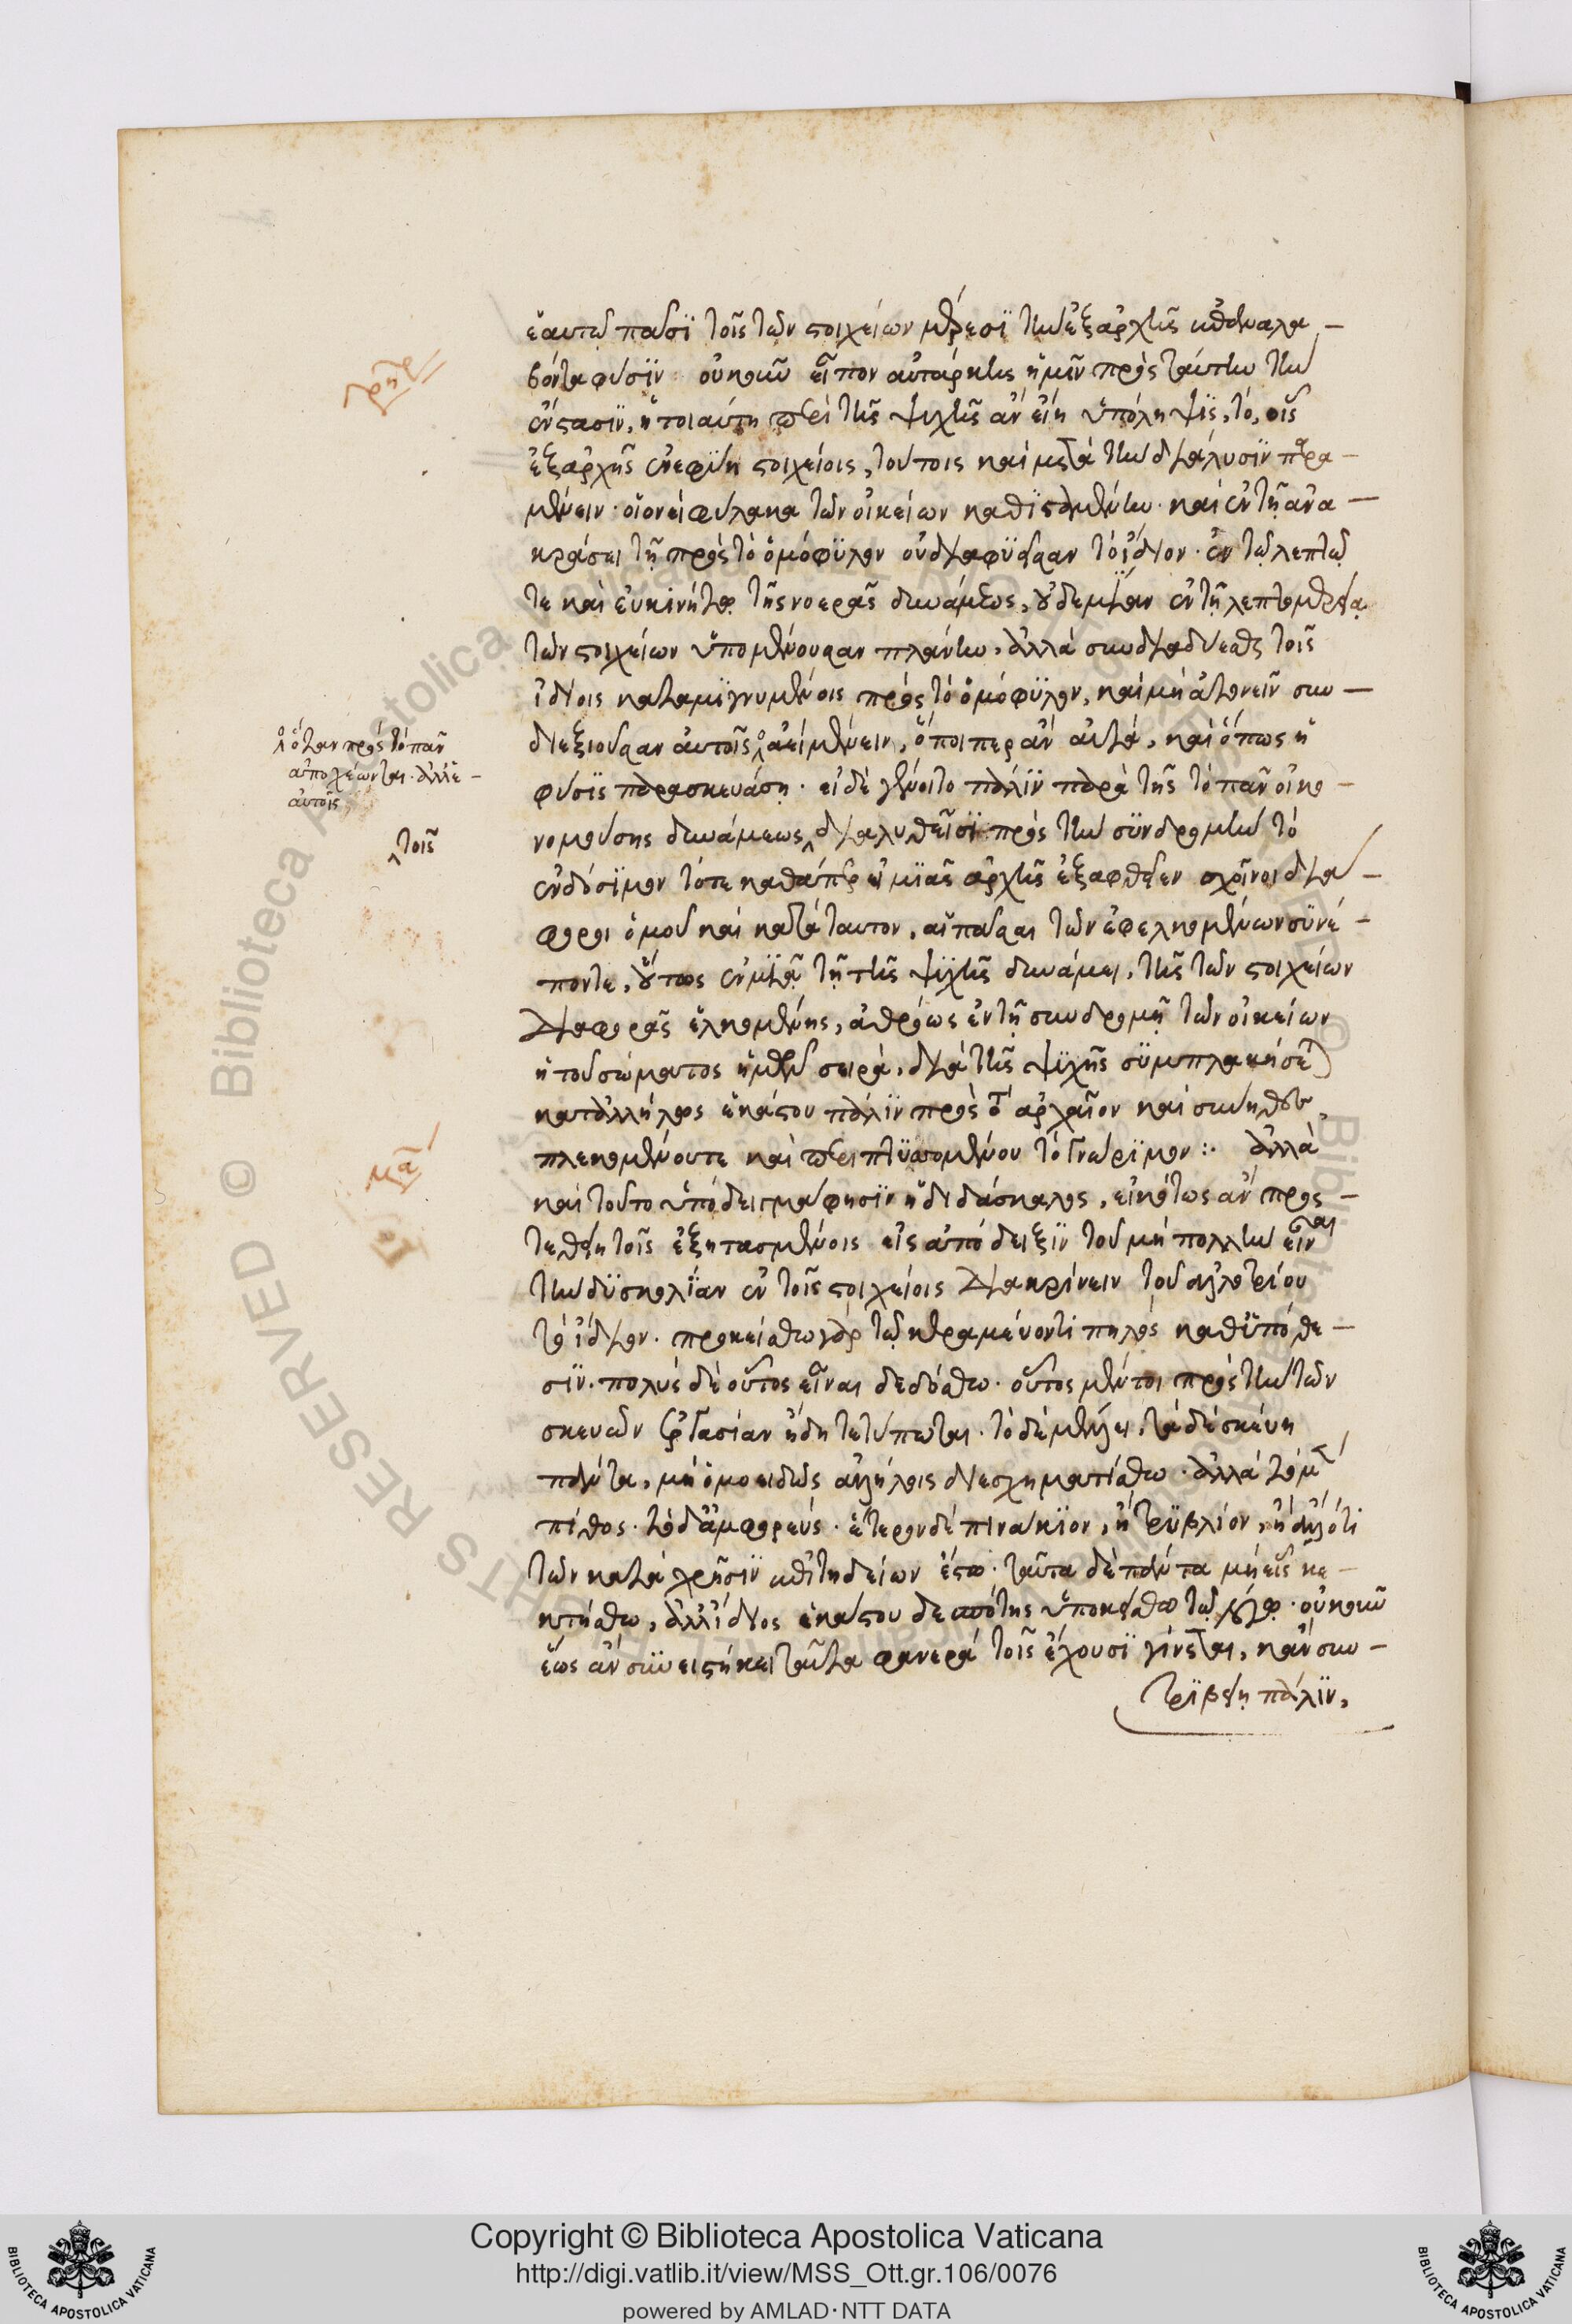 ἑαυτῷ πᾶσι τοῖς τῶν στοιχείων μέρεσι τὴν ἐξ ἀρχῆς ἐπαναλα-
βόντα φύσιν. οὐκοῦν εἶπον αὐτάρκης ἡμῖν πρὸς ταύτην τὴν
ἔνστασιν, ἡ τοιαύτη περὶ τῆς ψυχῆς ἂν εἴη ὑπόληψις, τὸ, οἷς
ἐξαρχῆς ἐνεφύη στοιχείοις, τούτοις καὶ μετὰ τὴν διάλυσιν παρα-
μένειν. οἱονεὶ φύλακα τῶν οἰκείων καθισταμένην. καὶ ἐν τῇ ἀνα-
κράσει τῇ πρὸς τὸ ὁμόφυλον οὐ διαφυσᾶσαν τὸ ἴδιον. ἐν τῷ λεπτῷ
τε καὶ εὐκινήτῳ τῆς νοερᾶς δυνάμεως, οὐδεμίαν ἐν τῇ λεπτομερείᾳ
τῶν στοιχείων ὑπομένουσαν πλάνην, ἀλλὰ συνδιαδύεσθαι τοῖς
ἰδίοις καταμιγνυμένοις πρὸς τὸ ὁμόφυλον, καὶ μὴ ἀτονεῖν συν-
διεξιοῦσαν αὐτοῖς ἀεὶ μένειν, ὅποιπερ ἂν αὐτὰ, καὶ ὅπως ἡ
ὅταν πρὸς τὸ πᾶν
ἀποχέωνται. ἀλλ' ἐ-
αὐτοῖς
φύσις παρασκευάσῃ. εἰ δὲ γένοιτο πάλιν παρὰ τῆς τὸ πᾶν οἰκο-
νομούσης δυνάμεως διαλυθεῖσι πρὸς τὴν συνδρομὴν τὸ
τοῖς
ἐνδόσιμον τότε καθάπερ εἰ μιᾶς ἀρχῆς ἐξαφθεῖεν σχοῖνοι διά-
φοροι ὁμοῦ καὶ κατὰ ταυτὸν, αἱ πᾶσαι τῶν ἐφελκομένων συνέ-
ποντε, οὕτως ἐν μιᾷ τῇ τῆς ψυχῆς δυνάμει, τῆς τῶν στοιχείων
διαφορᾶς ἑλκομένης, ἀθρόως ἐν τῇ συνδρομῇ τῶν οἰκείων
ἡ τοῦ σώματος ἡμῶν σειρὰ, διὰ τῆς ψυχῆς συμπλακήσεται
καταλλήλως ἑκάστου πάλιν πρὸς τὸ ἀρχαῖον καὶ σύνηθες
πλεκομένου τε καὶ περιπτυσσομένου τὸ γνώριμον :. ἀλλὰ
καὶ τοῦτο ὑπόδειγμα φησὶν ἡ διδάσκαλος, εἰκότως ἂν προσ-
τεθείη τοῖς ἐξητασμένοις εἰς ἀπόδειξιν τοῦ μὴ πολλὴν εἶναι
τὴν δυσκολίαν ἐν τοῖς στοιχείοις διακρίνειν τοῦ ἀλλοτρίου
τὸ ἴδιον. προκείσθω γὰρ τῷ κεραμεύοντι πηλὸς καθ' ὑπόθε-
σιν. πολὺς δὲ οὗτος εἶναι δεδόσθω. οὗτος μέντοι πρὸς τὴν τῶν
σκευῶν ἐργασίαν ἤδη τετύπωται. τὸ δὲ μέλλει, τὰ δὲ σκεύη
πάντα, μὴ ὁμοειδῶς ἀλλήλοις διεσχηματίσθω. ἀλλὰ τὸ μὲν
πίθος. τὸ δ' ἀμφορεύς. ἕτερον δὲ πινάκιον, ἢ τρυβλίον, ἢ ἄλλό τι
τῶν κατὰ χρῆσιν ἐπιτηδείων ἔστω. ταῦτα δὲ πάντα μὴ εἷς κε-
κτήσθω, ἀλλ' ἴδιος ἑκάστου δεσπότης ὑποκείσθω τῷ λόγῳ. οὐκοῦν
ἕως ἂν συνειστήκει ταῦτα φανερὰ τοῖς ἔχουσι γίνεται, κἂν συν-
τριβείη πάλιν,
Copyright © Biblioteca Apostolica Vaticana
http://digi.vatlib.it/view/MSS_Ott.gr.106/0076
powered by AMLAD·NTT DATA